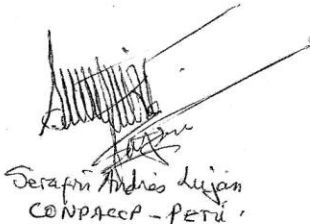 Serafín Andrés Luján
CONPACCP - PERÚ.